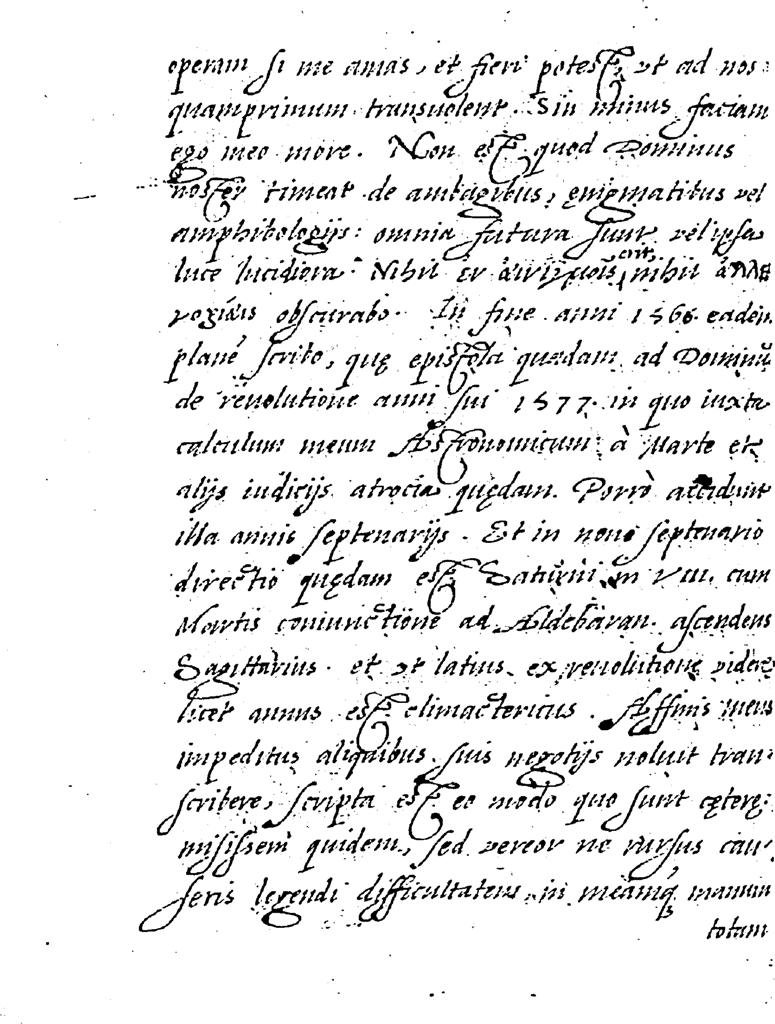 operam si me amas, et fieri potest, ut ad nos
quamprimum transuolent. Sin minus faciam
ego meo more. Non est quod Dominus
noster timeat de ambagibus, ęnigmatibus vel
amphibologijs: omnia futura sunt vel ipsa
luce lucidiora. Nihil er erit, nihil
obscurabo. In fine anni 1566. eadem
planè scribo, quę epistola quædam ad Dominū
de reuolutione anni sui 1577. in quo iuxta
calculum meum Astronomicum à Marte et
alijs iudicijs atrocia quędam. Porrò accidunt
illa annis septenarijs. Et in nono septenario
directio quędam est Saturni in VIII. cum
Martis coniunctione ad Aldebaran. ascendens
Sagittarius. et ut latius ex reuolutione videre
licet annus est climactericus. Affinis meus
impeditus aliquibus suis negotijs noluit tran
scribere, scripta est eo modo quo sunt cęterę:
misissem quidem, sed vereor ne rursus cau
seris legendi difficultatem, in meamq́ manum
totam